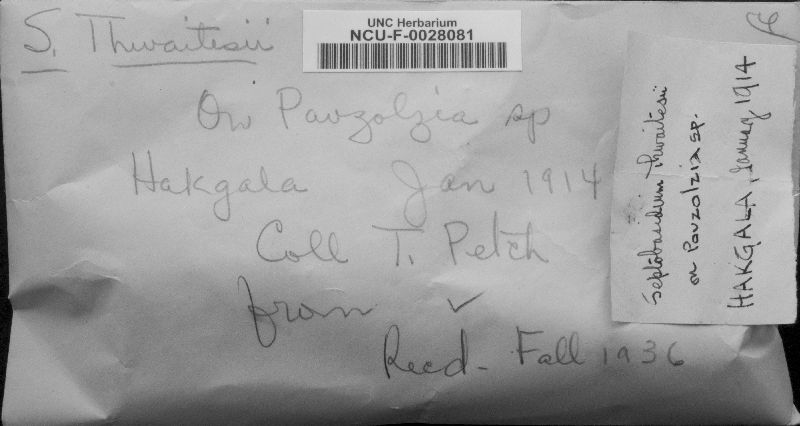 UNC Herbarium
NCU-F-0028081
S. Thwaitesii
On Pavzolzia sp
Hakgala Jan 1914
Coll T. Petch
from ✓
Recd- Fall 1936
Septobasidium Thwaitesii
on Pouzolzia sp.
HAKGALA, January 1914